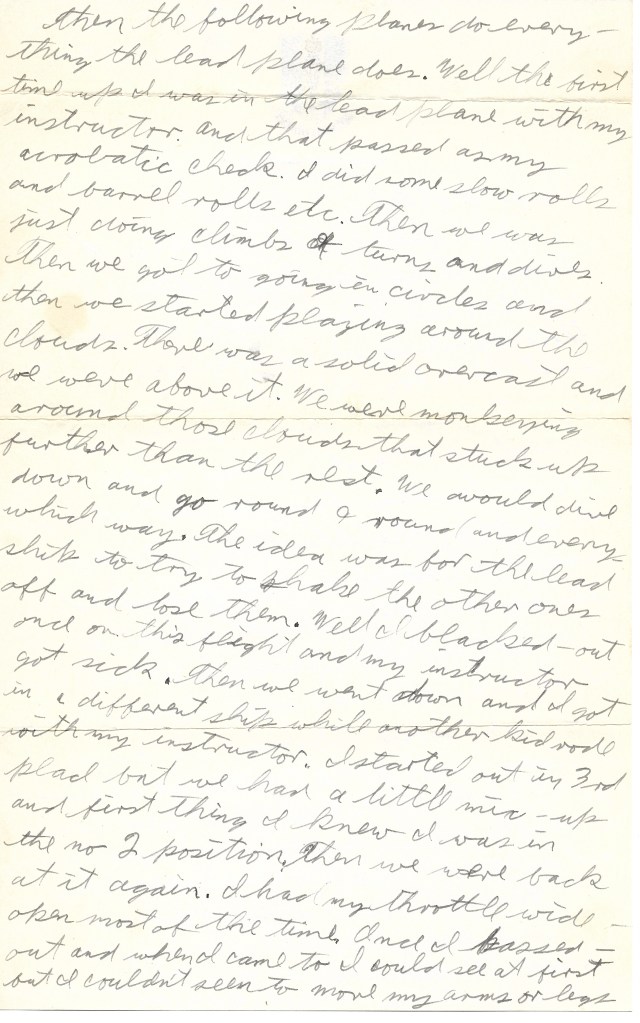 then the following planes do every-
thing the lead plane does. Well the first
time up I was in the lead plane with my
instructor. and that passed as my
acrobatic check. I did some slow rolls
and barrel rolls etc. Then we was
just doing climbs & turns and dives.
Then we got to going in circles and
then we started playing around the
clouds. There was a solid overcast and
we were above it. We were monkeying
around those clouds that stuck up
further than the rest. We would dive
down and go round & round and every
which way. The idea was for the lead
ship to try to shake the other ones
off and lose them. Well I blacked-out
once on this flight and my instructor
got sick. Then we went down and I got
in a different ship while another kid rode
with my instructor. I started out in 3rd
place but we had a little mix-up
and first thing I knew I was in
the no 2 position. Then we were back
at it again. I had my throttle wide-
open most of the time. Once I passed-
out and when I came to I could see at first
but I couldn't seem to move my arms or legs